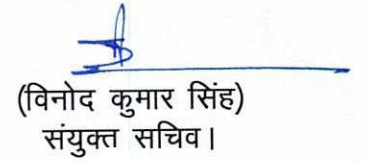 (विनोद कुमार सिंह)
संयुक्त सचिव।